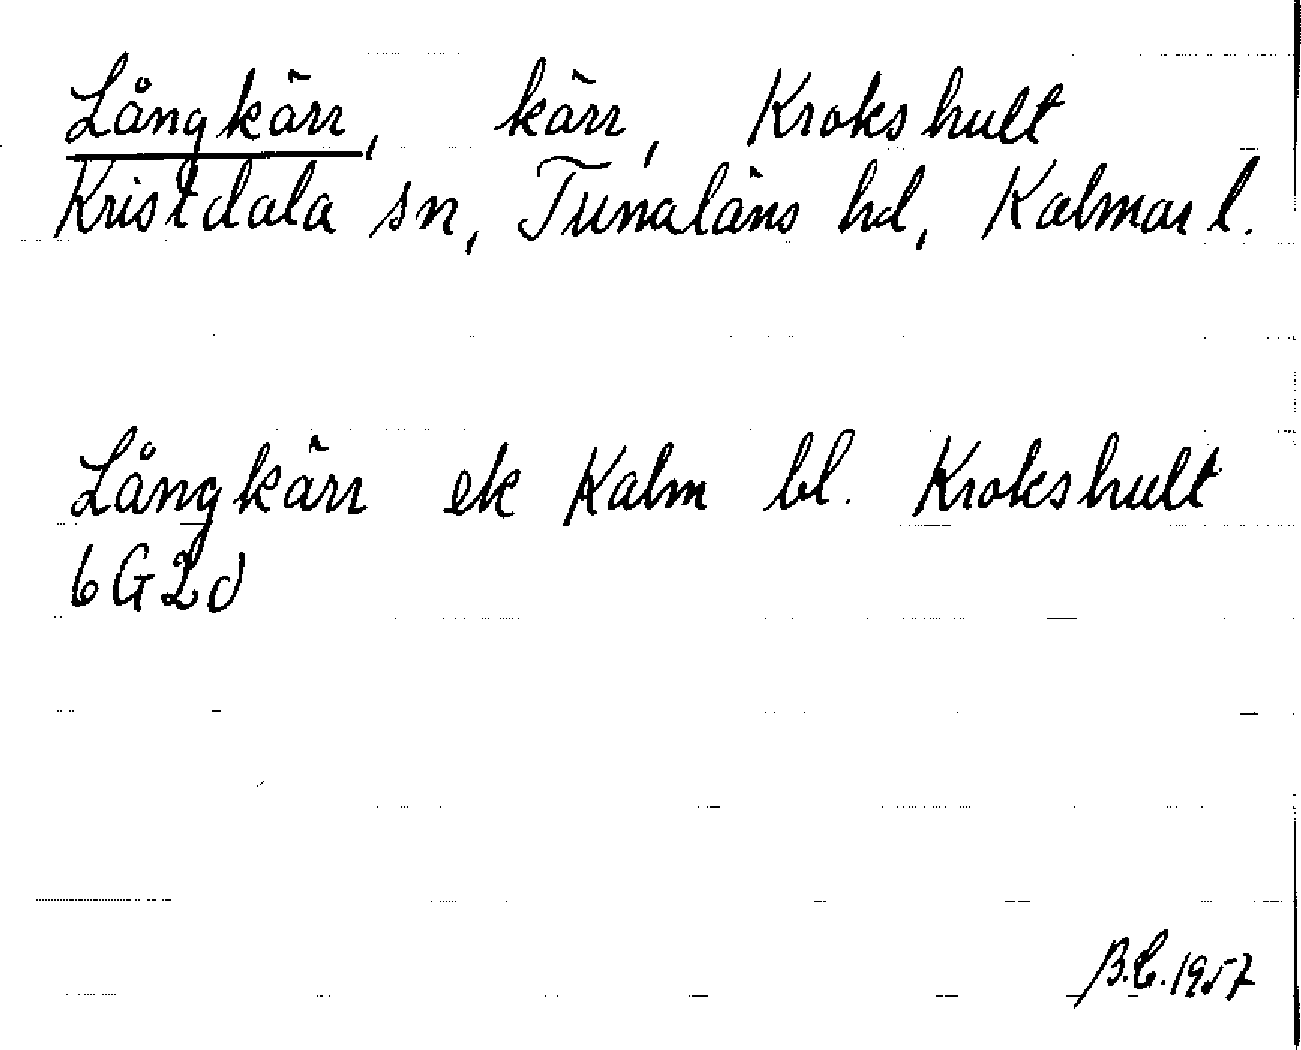 Långkärr, kärr, Krokshult
Kristdala sn, Tunaläns hd, Kalmar l.
Långkärr ek Kalm bl. Krokshult
6G2d
B.C. 1957